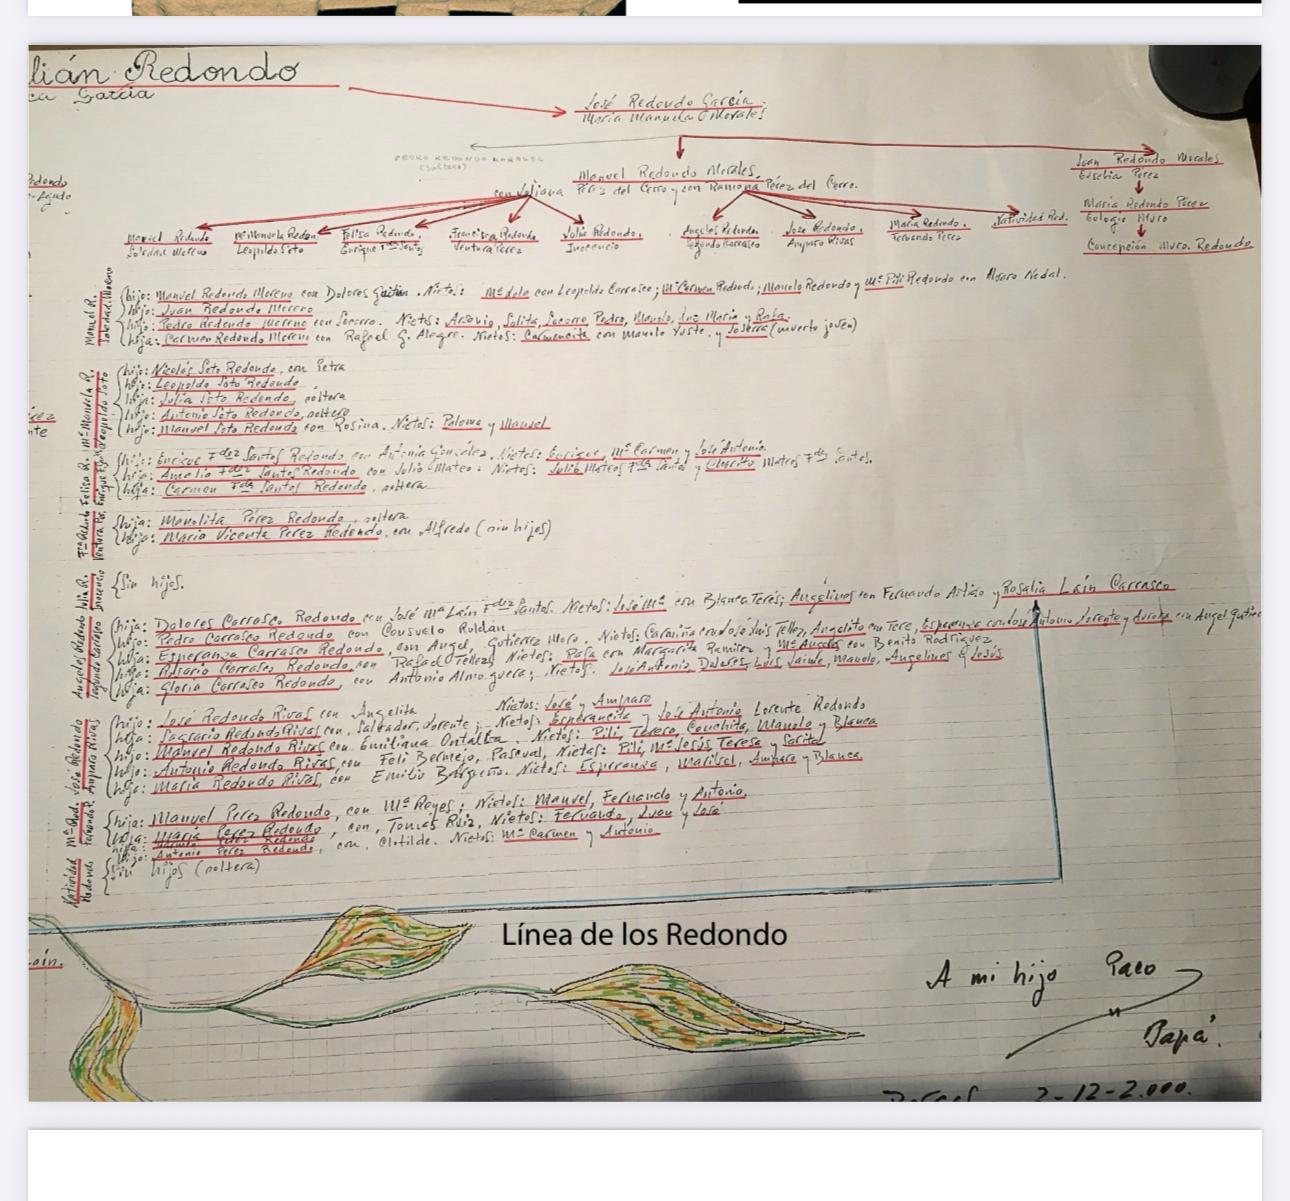 lián Redondo
ca García
José Redondo García
María Manuela Morales
PEDRO REDONDO MORALES
(soltero)
Manuel Redondo Morales,
con Juliana Pérez del Cerro y con Ramona Pérez del Cerro.
Juan Redondo Morales
Eusebia Pérez
María Redondo Pérez
Eulogio Muro
Concepción Muro Redondo
Redondo
Manuel Redondo
Soledad Moreno
Mª Manuela Redon.
Leopoldo Soto
Felisa Redondo.
Enrique Fdez Santos
Francisca Redondo
Ventura Pérez
Julia Redondo.
Inocencio
Angeles Redondo
Segundo Carrasco
José Redondo.
Amparo Rivas
María Redondo.
Fernando Pérez
Natividad Red.
Manuel R.
Soledad Moreno
hijo: Manuel Redondo Moreno con Dolores Gaitán. Nietos: Mª dolo con Leopoldo Carrasco; Mª Carmen Redondo; Manolo Redondo y Mª Pili Redondo con Alvaro Nadal.
hijo: Juan Redondo Moreno
hijo: Pedro Redondo Moreno con Socorro. Nietos: Antonio, Solita, Socorro Pedro, Manolo, Luz María y Rafa.
hija: Carmen Redondo Moreno con Rafael G. Alegre. Nietos: Carmencita con Manolo Yuste, y Joserra (muerto joven)
Mª Manuela R.
Leopoldo Soto
hijo: Nicolás Soto Redondo, con Petra
hijo: Leopoldo Soto Redondo
hija: Julia Soto Redondo, soltera
hijo: Antonio Soto Redondo, soltero
hijo: Manuel Soto Redondo con Rosina. Nietos: Paloma y Manuel
Felisa R.
hijo: Enrique Fdez Santos Redondo con Antonia González. Nietos: Enrique, Mª Carmen y José Antonio.
hija: Amalia Fdez Santos Redondo con Julio Mateo. Nietos: Julio Mateos Fdez Santos y Mateos Fdez Santos.
hija: Carmen Fdez Santos Redondo, soltera
Ventura Pz.
hija: Manolita Pérez Redondo, soltera
hija: María Vicenta Perez Redondo, con Alfredo (sin hijos)
Julia R.
Inocencio
Sin hijos.
Angeles Redondo
Segundo Carrasco
hija: Dolores Carrasco Redondo con José Mª Laín Fdez Santos. Nietos: José Mª con Blanca Terés; Angelines con Fernando y Rosalía Laín Carrasco
hijo: Pedro Carrasco Redondo con Consuelo Roldán
hija: Esperanza Carrasco Redondo, con Angel Gutierrez Moro. Nietos: Carmiña con José Luis Tellez, Angelito con Tere, Esperanza con José Antonio Lorente y Aurora con Angel
hija: Carrasco Redondo, con Rafael Tellez. Nietos: Rafa con Margarita Ramirez y Mª Angeles con Benito Rodriguez
hija: Gloria Carrasco Redondo, con Antonio Almoguera; Nietos: José Antonio, Dolores, Luis, Jaime, Manolo, Angelines y Jesús
José Redondo
Amparo Rivas
hijo: José Redondo Rivas con Angelita Nietos: José y Amparo
hija: Sagrario Redondo Rivas con Salvador Lorente; Nietos: Esperancita y José Antonio Lorente Redondo
hijo: Manuel Redondo Rivas con Emiliana Ontalba. Nietos: Pili, Tereso, Conchita, Manolo y Blanca
hijo: Antonio Redondo Rivas, con Feli Bermejo, Pascual, Nietas: Pili, Mª Jesús Teresa y Sarita
hija: María Redondo Rivas, con Emilio Nietos: Esperanza, Maribel, Amparo y Blanca
Mª Red.
hijo: Manuel Perez Redondo, con Mª Reyes; Nietos: Manuel, Fernando y Antonio.
hija: María Perez Redondo, con, Tomás Ruiz, Nietos: Fernando, Juan y José
hijo: Antonio Perez Redondo, con Clotilde. Nietos: Mª Carmen y Antonio
Natividad
Redondo
Sin hijos (soltera)
Línea de los Redondo
A mi hijo Paco
Papá.
2-12-2.000.